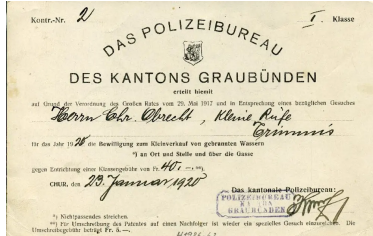 Kontr.-Nr. 2 I. Klasse
DAS POLIZEIBUREAU
DES KANTONS GRAUBÜNDEN
erteilt hiemit
auf Grund der Verordnung des Großen Rates vom 29. Mai 1917 und in Entsprechung eines bezüglichen Gesuches
Herrn Chr. Obrecht, Kleine Rüfe
Trimmis
für das Jahr 1928 die Bewilligung zum Kleinverkauf von gebrannten Wassern
*) an Ort und Stelle und über die Gasse
gegen Entrichtung einer Klassengebühr von Fr. 40.—
CHUR, den 23. Januar 1928
Das kantonale Polizeibureau:
POLIZEIBUREAU
GRAUBÜNDEN
*) Nichtpassendes streichen.
**) Für Umschreibung des Patentes auf einen Nachfolger ist wieder ein spezielles Gesuch einzureichen. Die
Umschreibgebühr beträgt Fr. 5.—.